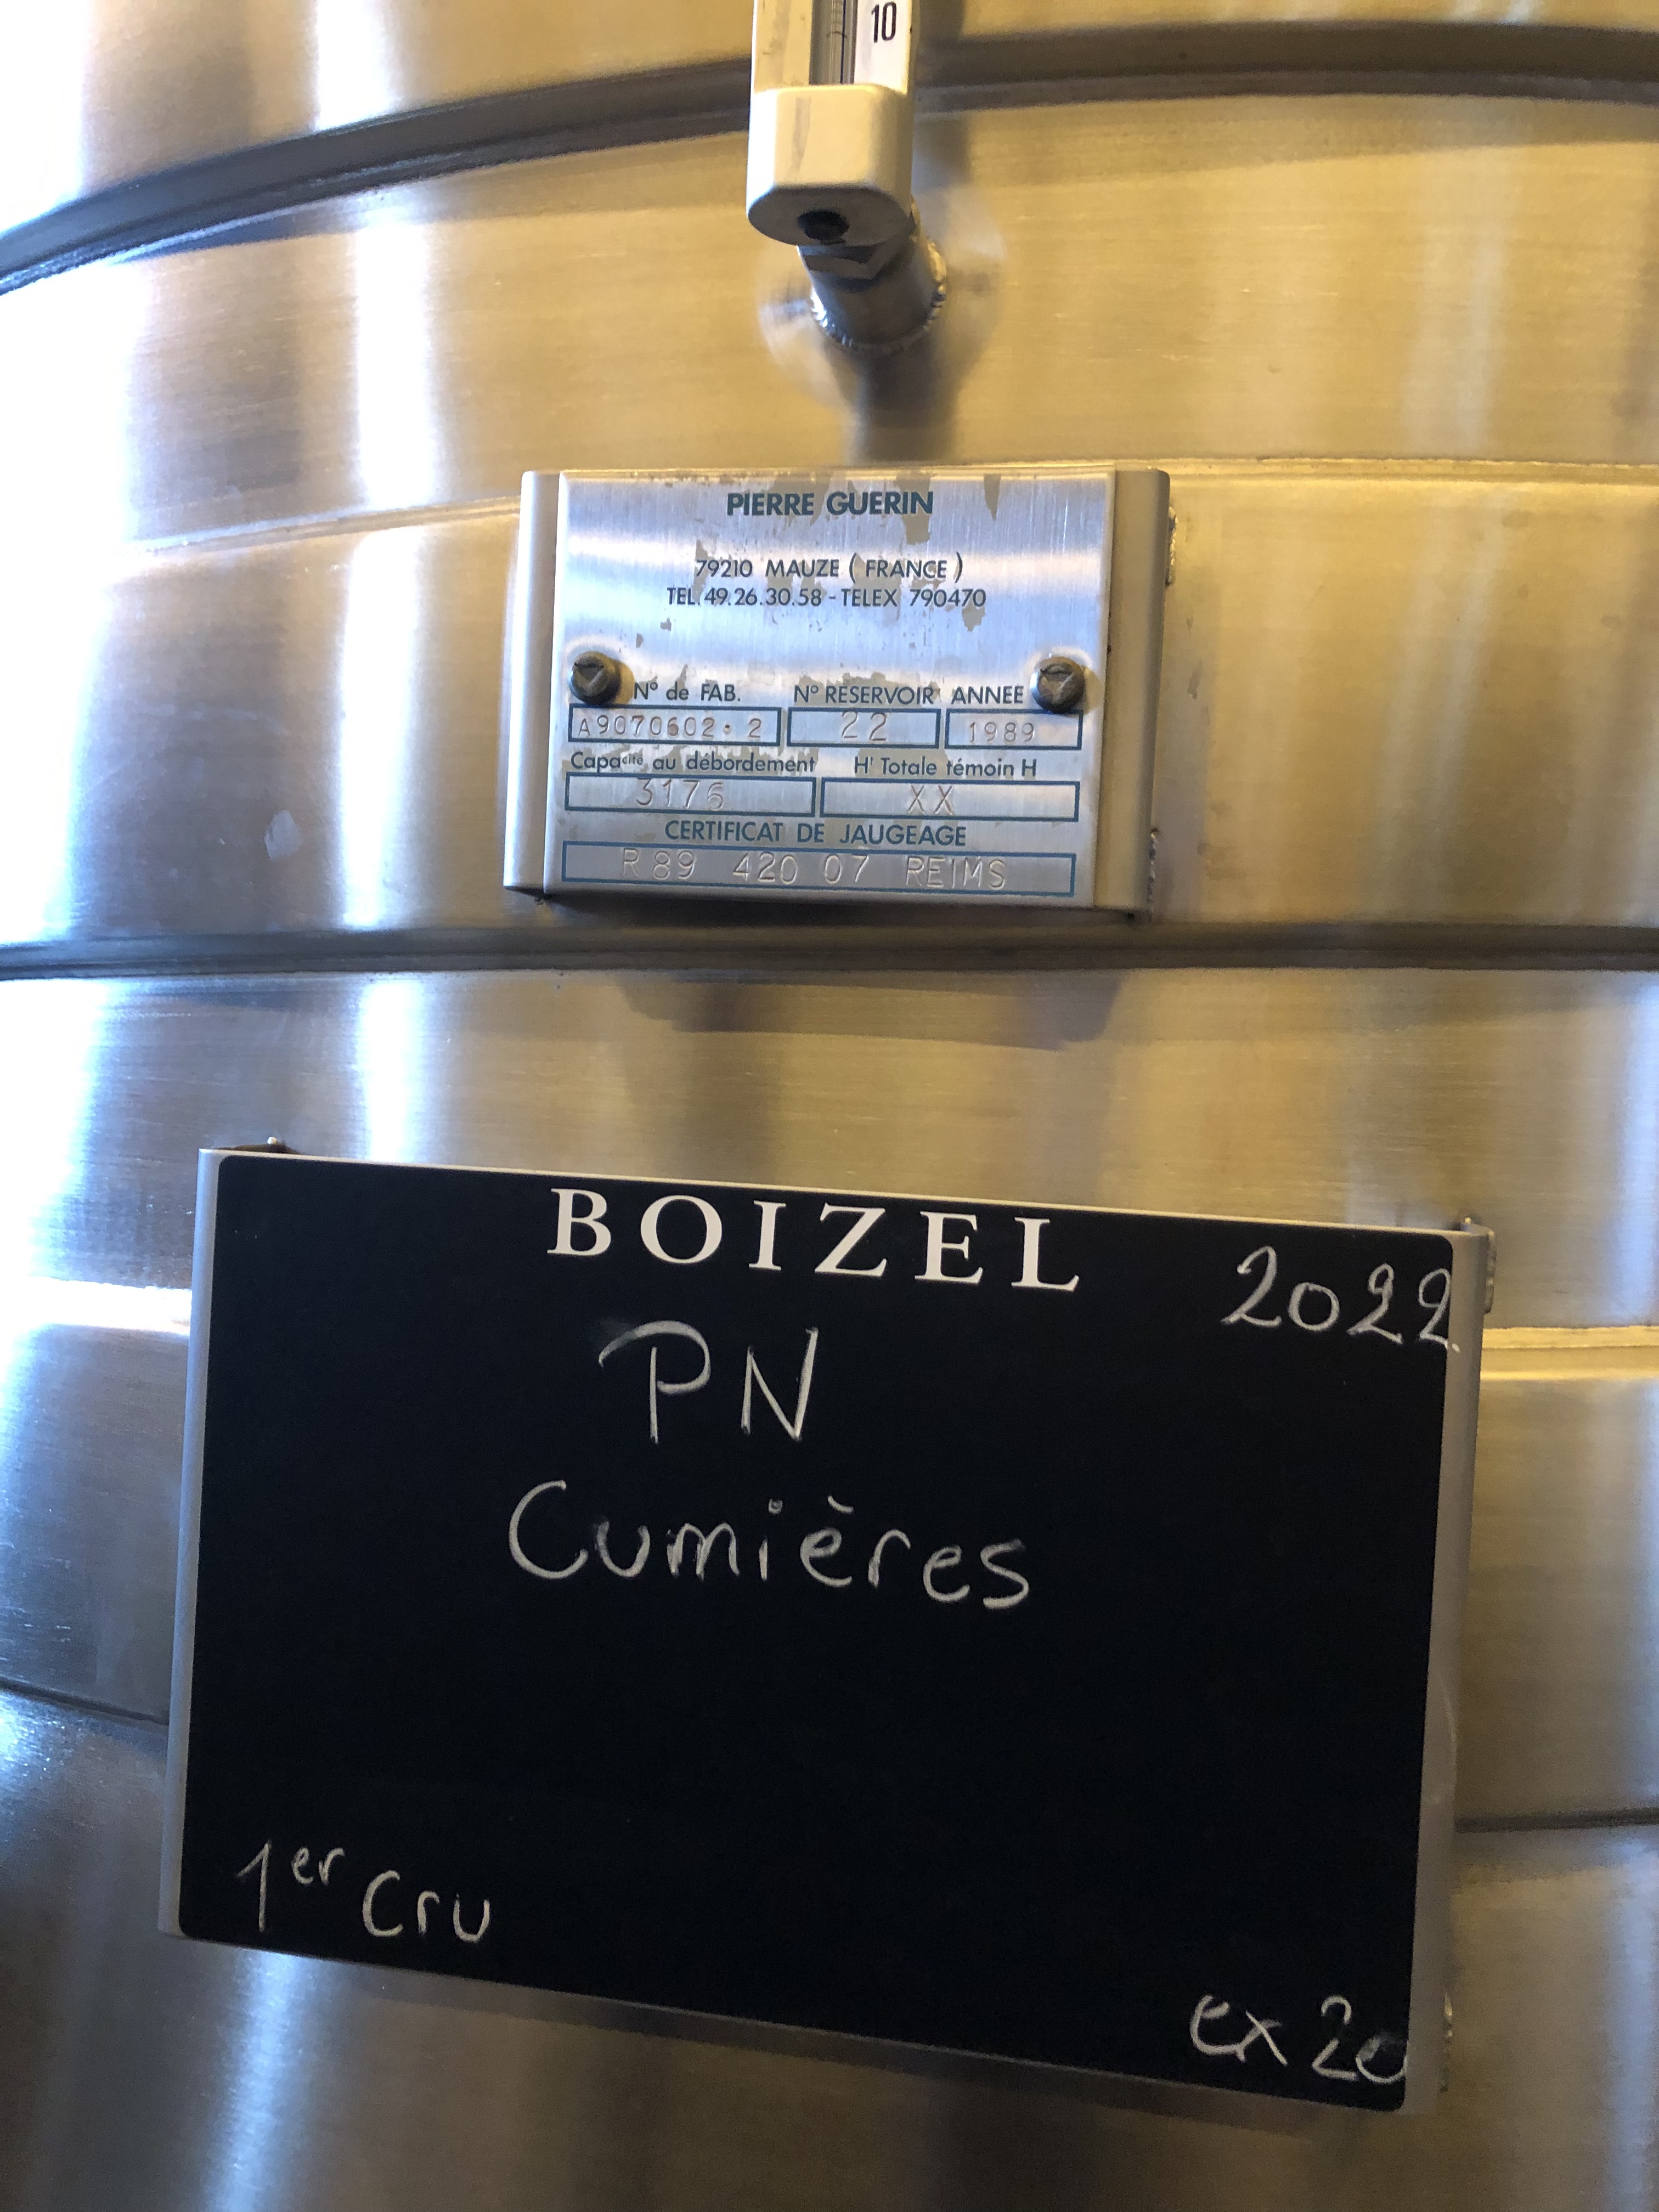 10
PIERRE GUERIN
79210 MAUZE ( FRANCE )
TEL. 49.26.30.58 - TELEX 790470
N° de FAB. N° RESERVOIR ANNEE
A9070602.2 22 1989
Capacité au débordement Hr Totale témoin H
3176 XX
CERTIFICAT DE JAUGEAGE
R 89 420 07 REIMS
BOIZEL
2022
PN
Cumières
1er Cru
ex